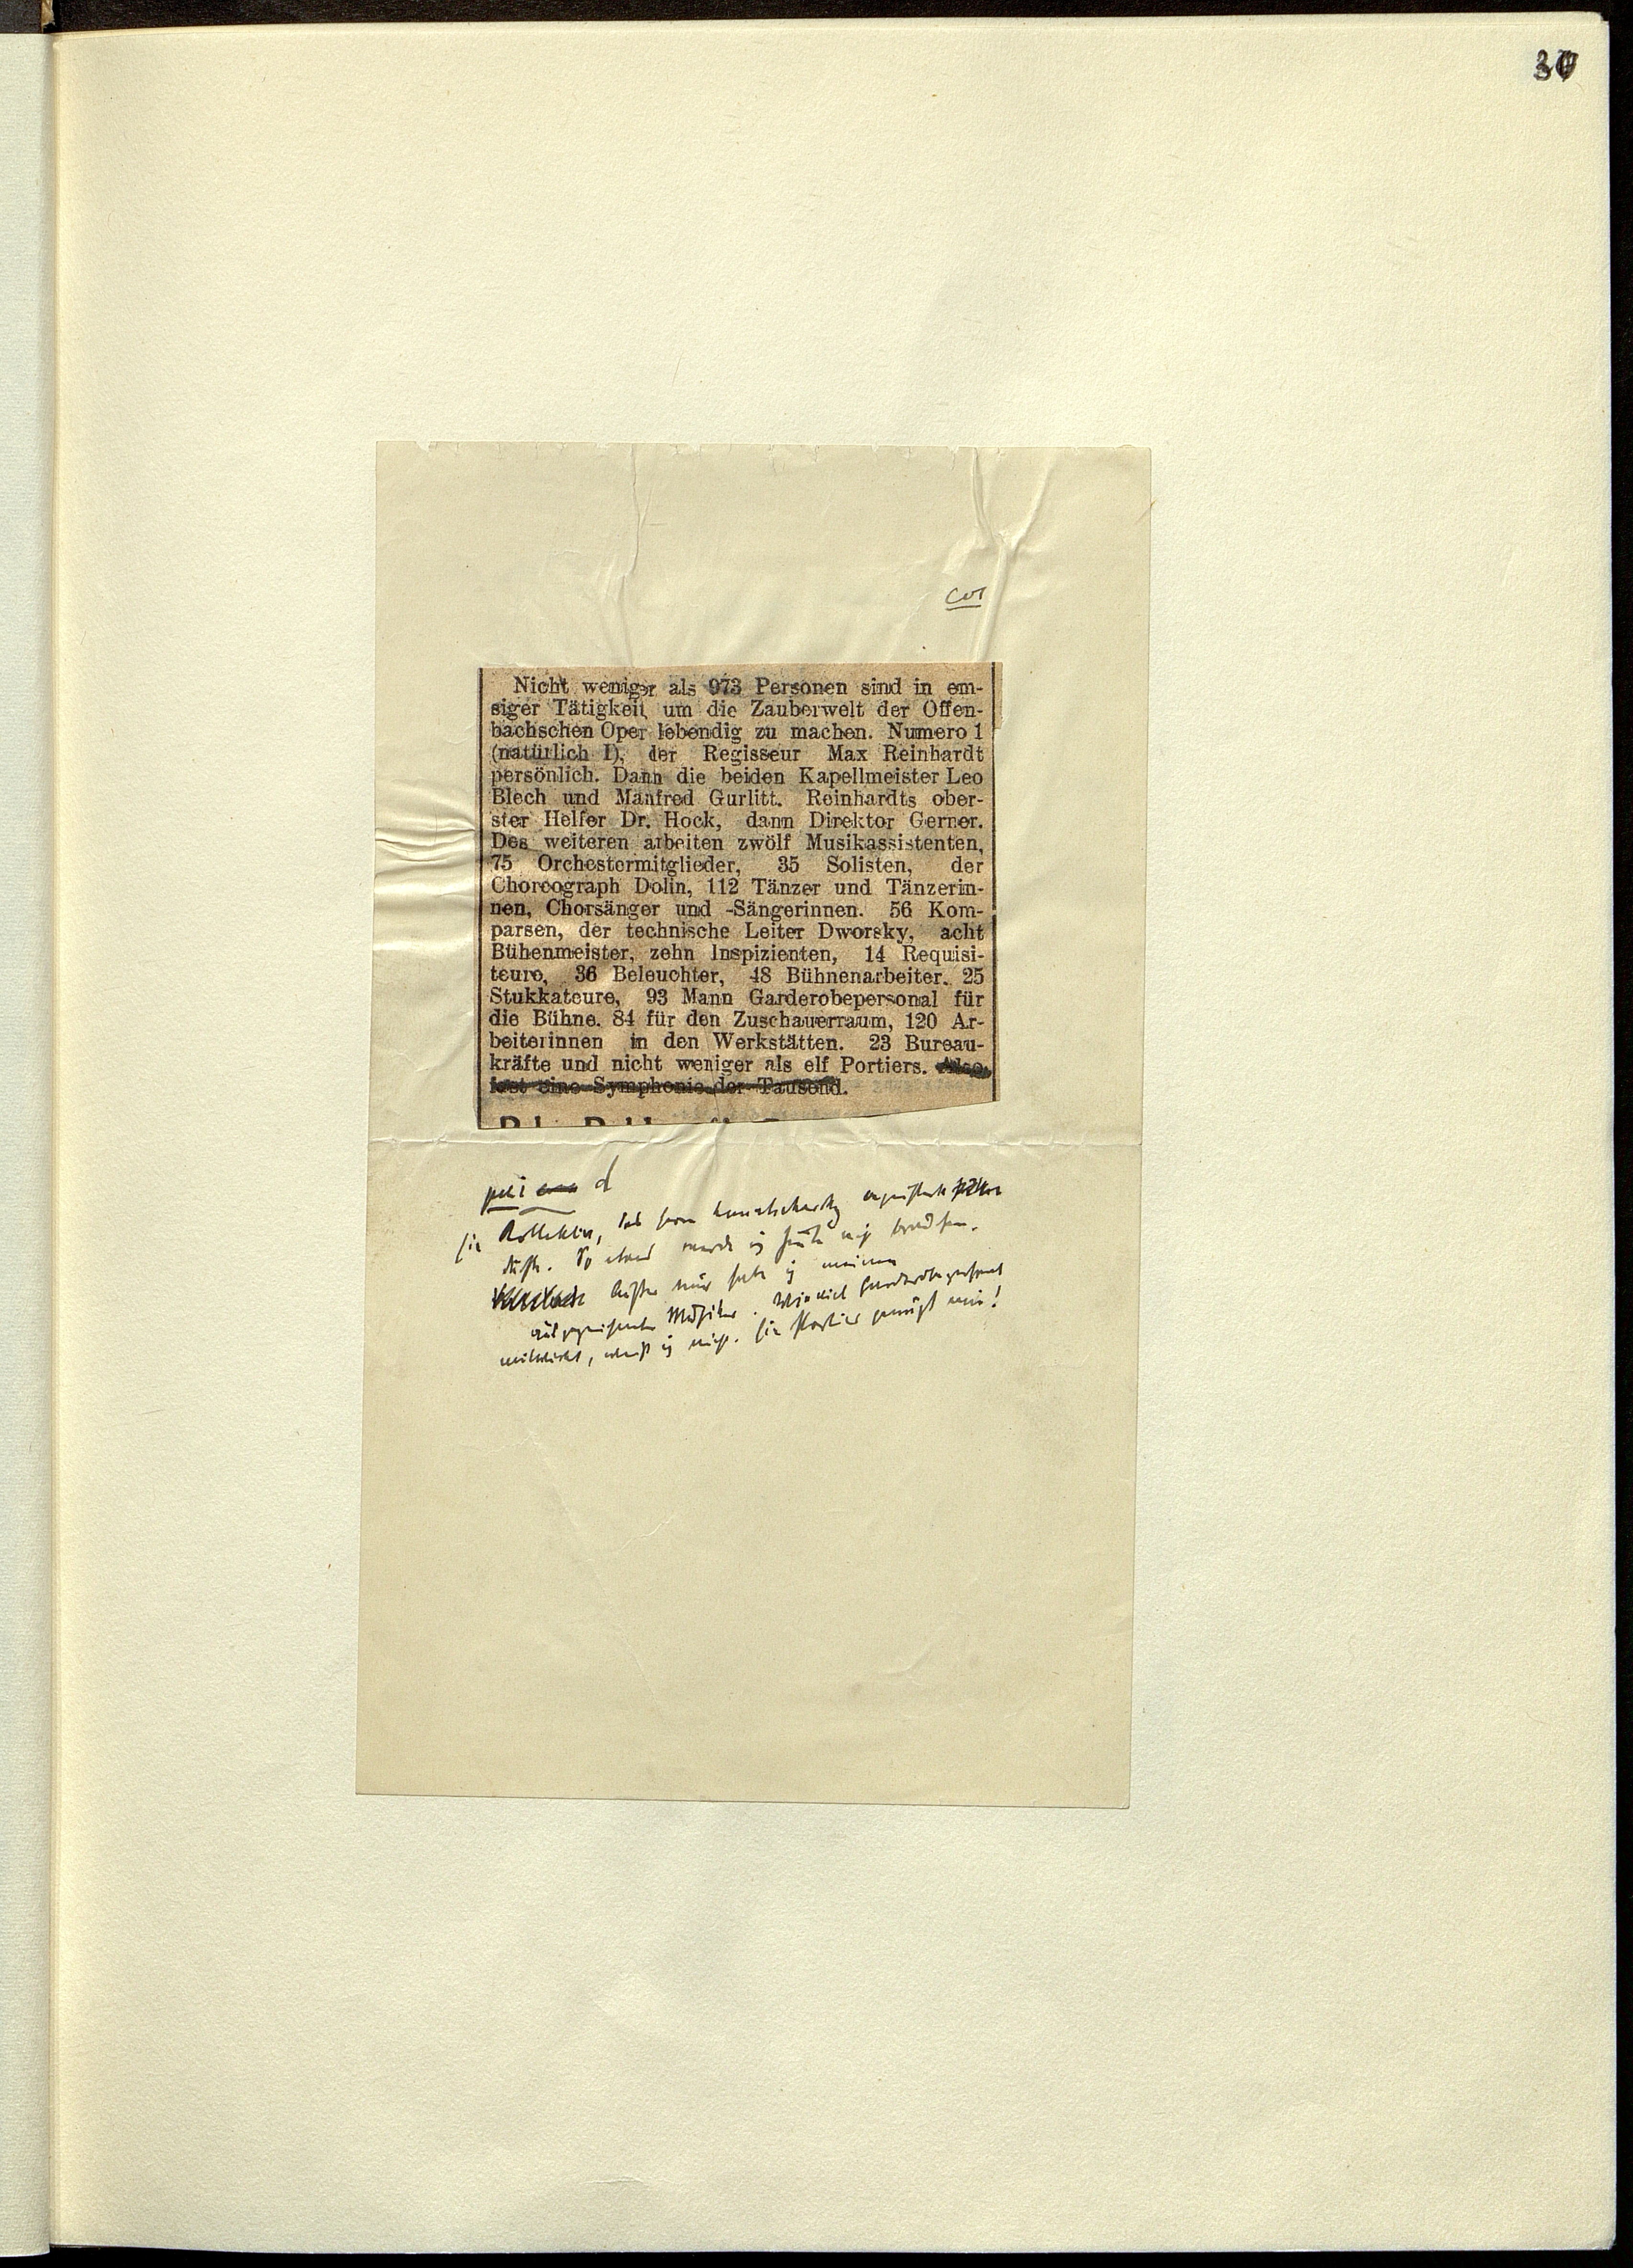 30
cor
Nicht weniger als 973 Personen sind in em-
siger Tätigkeit um die Zauberwelt der Offen-
bachschen Oper lebendig zu machen. Numero 1
(natürlich I), der Regisseur Max Reinhardt
persönlich. Dann die beiden Kapellmeister Leo
Blech und Manfred Gurlitt. Reinhardts ober-
ster Helfer Dr. Hock, dann Direktor Gerner.
Des weiteren arbeiten zwölf Musikassistenten,
75 Orchestermitglieder, 35 Solisten, der
Choreograph Dolin, 112 Tänzer und Tänzerin-
nen, Chorsänger und -Sängerinnen. 56 Kom-
parsen, der technische Leiter Dworsky, acht
Bühenmeister, zehn Inspizienten, 14 Requisi-
teure, 36 Beleuchter, 48 Bühnenarbeiter. 25
Stukkateure, 93 Mann Garderobepersonal für
die Bühne. 84 für den Zuschauerraum, 120 Ar-
beiterinnen in den Werkstätten. 23 Bureau-
kräfte und nicht weniger als elf Portiers. Also
fast eine Symphonie der Tausend.
Ein Kollektiv, das Herrn Lunatscharsky
So etwas würde ich heute nicht
mir habe ich meinen
ausgezeichneten Musiker. Wieviel Garderobepersonal
mitwirkt, weiß ich nicht. Ein Portier genügt mir!